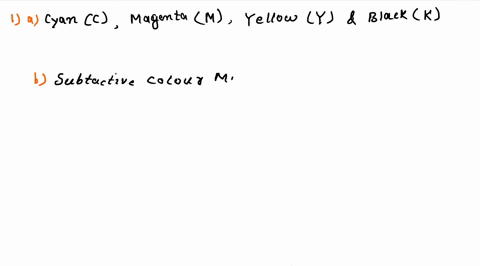 1) a) Cyan (C), Magenta (M), Yellow (Y) & Black (K)
b) Subtactive colour M.